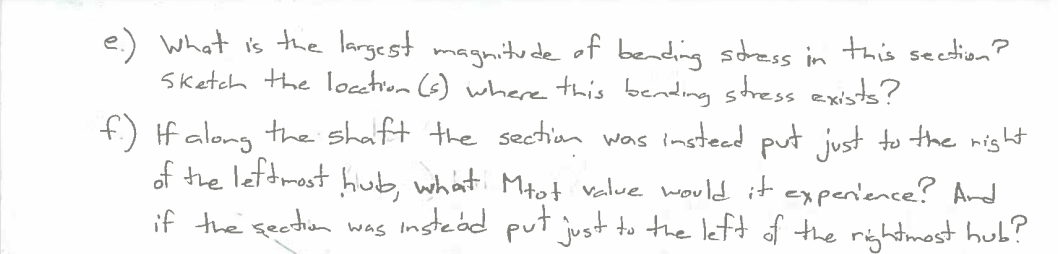 e.) What is the largest magnitude of bending stress in this section?
Sketch the location(s) where this bending stress exists?
f.) If along the shaft the section was instead put just to the right
of the leftmost hub, what Mtot value would it experience? And
if the section was instead put just to the left of the rightmost hub?